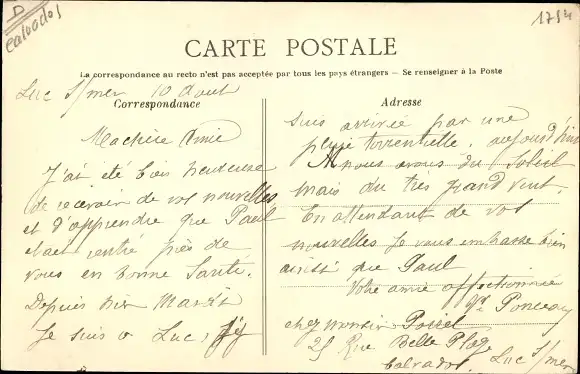 D
Calvados
1734
CARTE POSTALE
La correspondance au recto n'est pas acceptée par tous les pays étrangers — Se renseigner à la Poste
Luc s/mer 10 Aout
Correspondance
Ma chère Amie
J'ai été bien heureuse
de recevoir de vos nouvelles
et d'apprendre que Paul
était rentré près de
vous en bonne Santé.
Depuis hier Mardi
Je suis a Luc, J'y
Adresse
suis arrivée par une
pluie torrentielle, aujourd'hui
nous avons du Soleil
mais du très grand vent.
En attendant de vos
nouvelles Je vous embrasse bien
ainsi que Paul
Votre amie affectionnée
chez monsieur Poirel
25 Rue Belle Plage
Luc s/mer
Calvados.